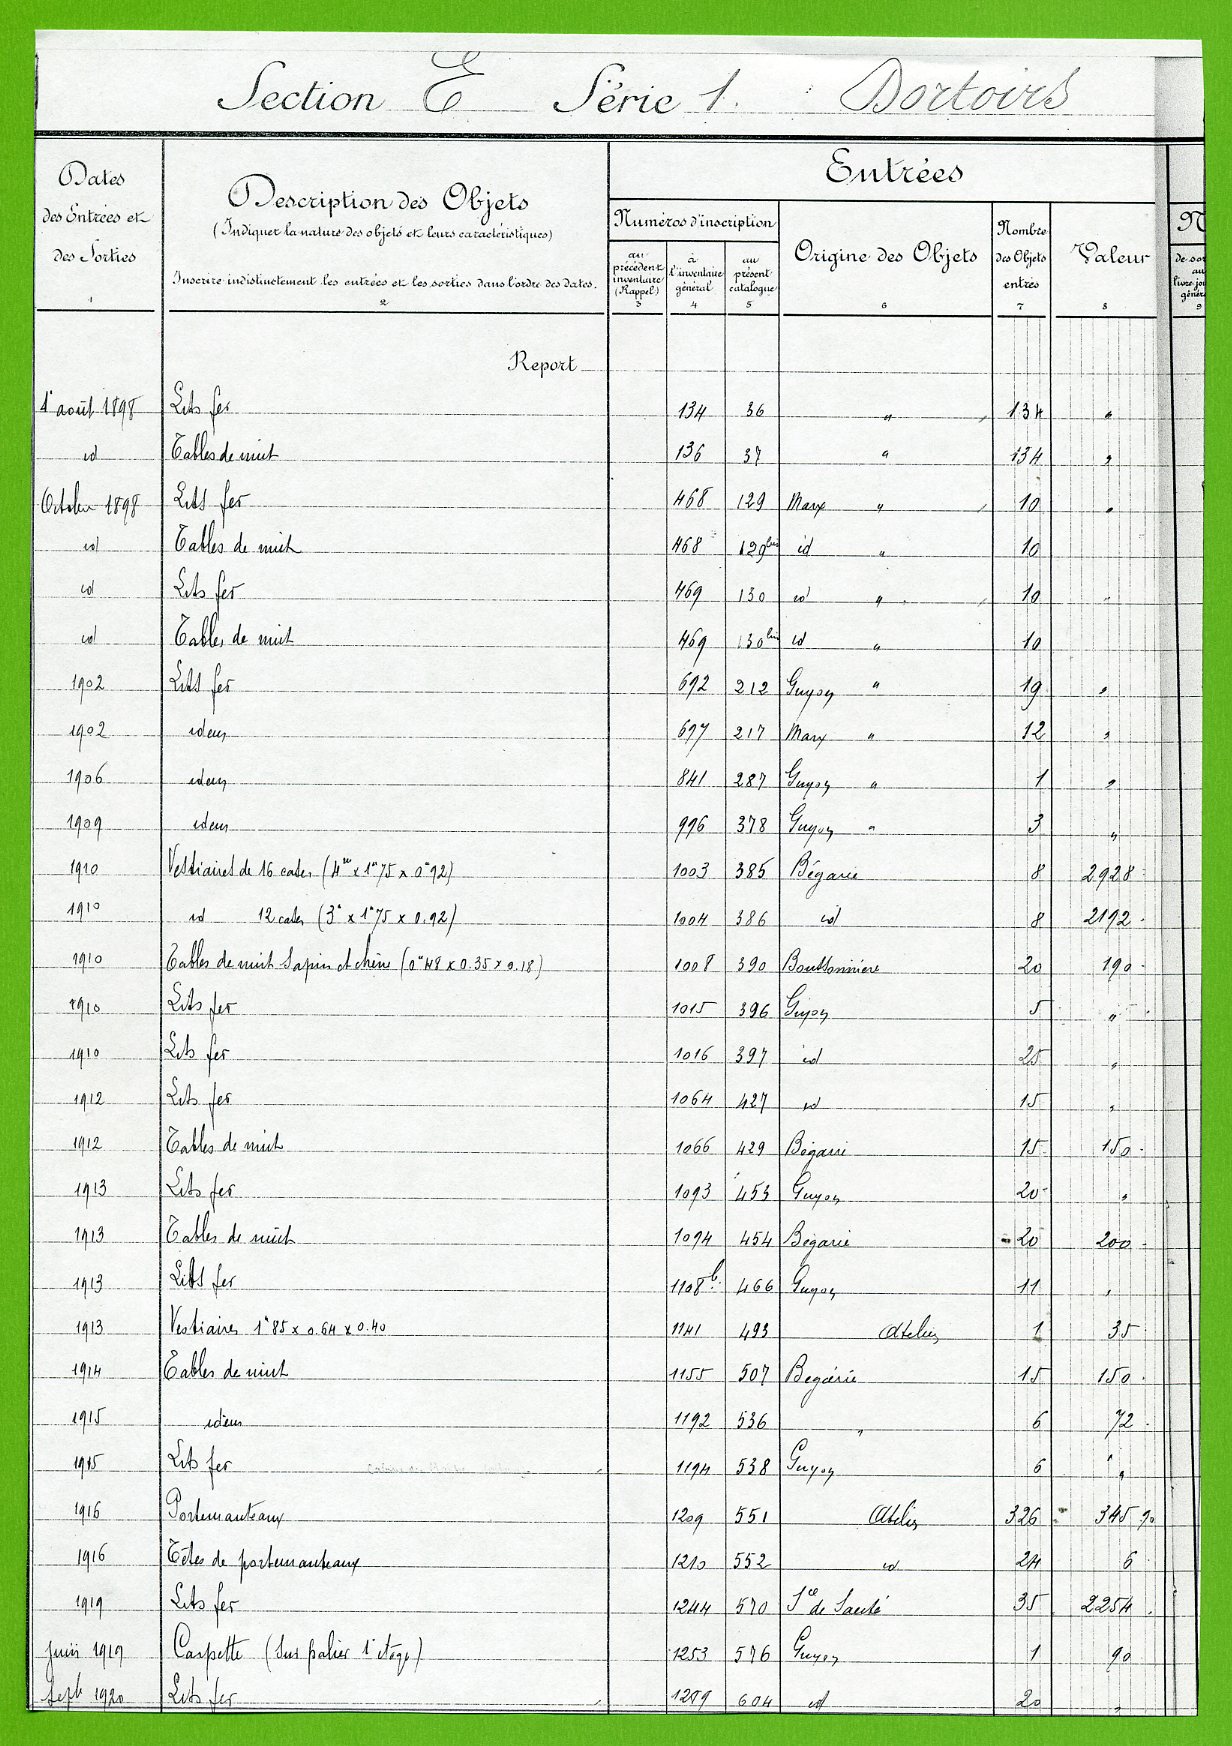 Section E Série 1. Dortoirs
Dates des Entrées et des Sorties
1
Description des Objets
(Indiquer la nature des objets et leurs caractéristiques)
Inscrire indistinctement les entrées et les sorties dans l'ordre des dates.
2
Entrées
Numéros d'inscription
au précédent inventaire (Rappel)
3
à l'inventaire général
4
au présent catalogue
5
Origine des Objets
6
Nombre des Objets entrés
7
Valeur
8
N
de sor
au
livre jo
génér
9
Report
1er août 1898 Lits fer 134 36 " 134 "
id Tables de nuit 136 37 " 134 "
Octobre 1898 Lits fer 468 129 Marx " 10 "
id Tables de nuit 468 129bis id " 10
id Lits fer 469 130 id " 10 "
id Tables de nuit 469 130bis id " 10
1902 Lits fer 692 212 Guyon " 19 "
1902 idem 697 217 Marx " 12 "
1906 idem 841 287 Guyon " 1 "
1909 idem 996 378 Guyon " 3 "
1910 Vestiaires de 16 cases (4m x 1m75 x 0m92) 1003 385 Bégarie 8 2928
1910 id 12 cases (3m x 1m75 x 0.92) 1004 386 id 8 2192
1910 Tables de nuit sapin et chêne (0m48 x 0.35 x 0.18) 1008 390 Boutsonnière 20 190
1910 Lits fer 1015 396 Guyon 5 "
1910 Lits fer 1016 397 id 25 "
1912 Lits fer 1064 427 id 15 "
1912 Tables de nuit 1066 429 Bégarie 15 150
1913 Lits fer 1093 453 Guyon 20 "
1913 Tables de nuit 1094 454 Bégarie 20 200
1913 Lits fer 1108b 466 Guyon 11 "
1913 Vestiaires 1m85 x 0.64 x 0.40 1141 493 Atelier 1 35
1914 Tables de nuit 1155 507 Bégarie 15 150
1915 idem 1192 536 " 6 72
1915 Lits fer 1194 538 Guyon 6 "
1916 Portemanteaux 1209 551 Atelier 326 345 90
1916 Têtes de portemanteaux 1210 552 id 24 6
1919 Lits fer 1244 570 Sce de Santé 35 2254
Juin 1919 Carpette (sur palier 1er étage) 1253 576 Guyon 1 90
Septe 1920 Lits fer 1289 604 id 20 "